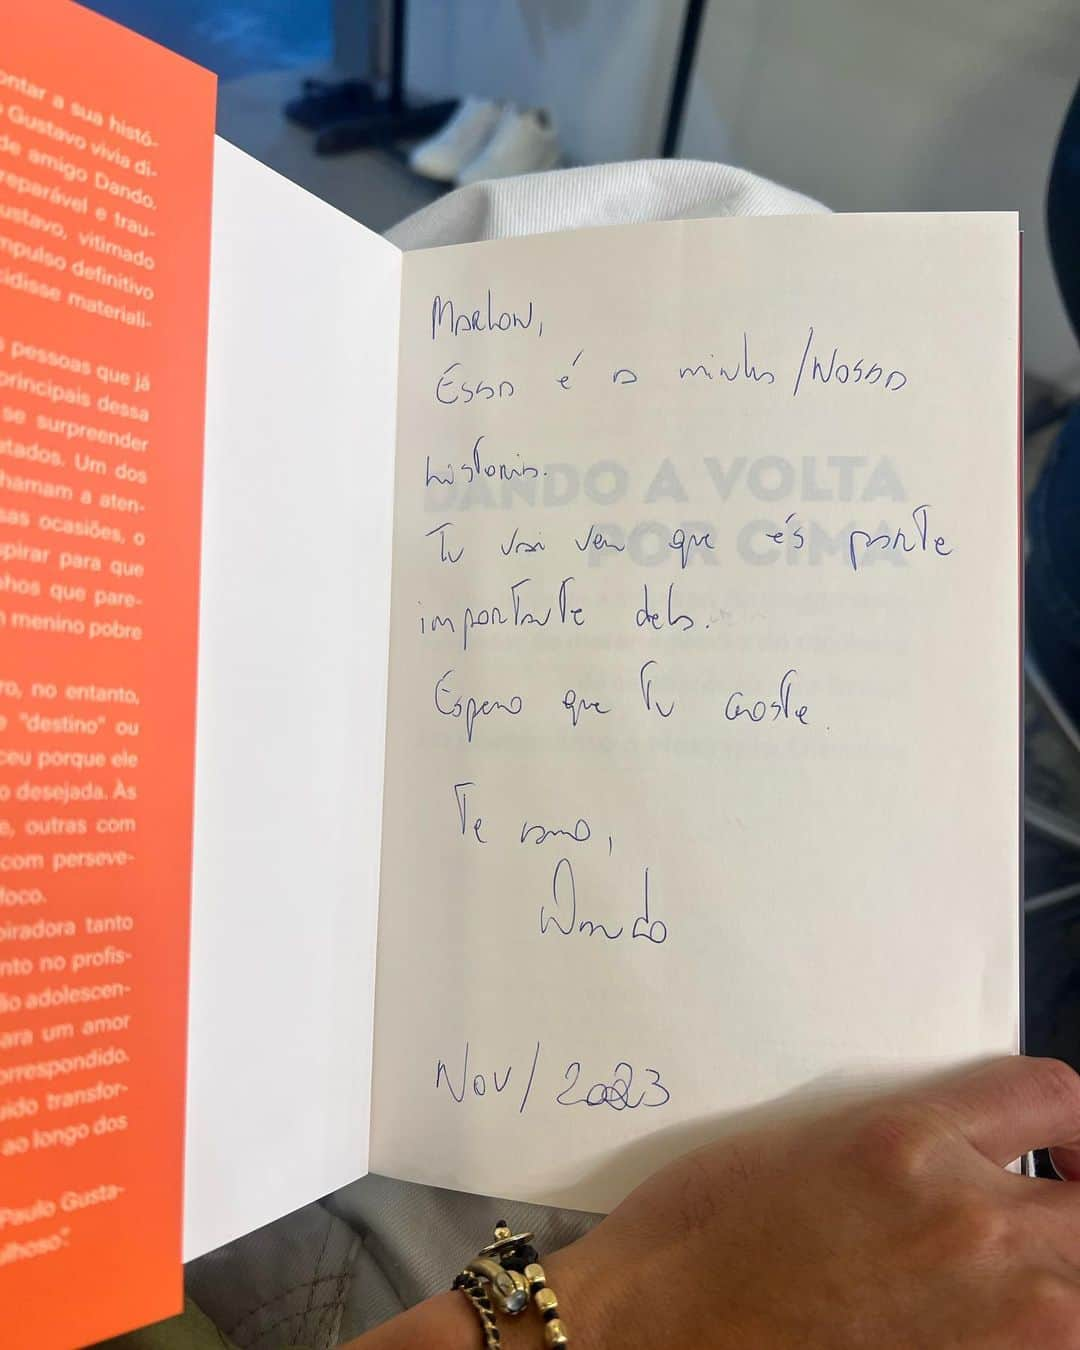 ontar a sua histó-
Gustavo vivia di-
de amigo Dando,
reparável e trau-
ustavo, vitimado
mpulso definitivo
cidisse materiali-
s pessoas que já
principais dessa
se surpreender
atados. Um dos
hamam a aten-
sas ocasiões, o
spirar para que
nhos que pare-
menino pobre
ro, no entanto,
e "destino" ou
ceu porque ele
o desejada. Às
e, outras com
com perseve-
foco.
piradora tanto
nto no profis-
ão adolescen-
para um amor
orrespondido.
uido transfor-
ao longo dos
Paulo Gusta-
ulhoso".
Marlon,
Essa é a minha/Nossa
historia.
Tu vai ver que és parte
importante dela.
Espero que tu goste.
Te amo,
Dando
Nov/2023
DANDO A VOLTA
POR CIMA